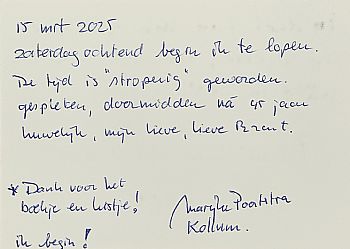 15 mrt 2025
zaterdagochtend begin ik te lopen.
De tijd is "stroperig" geworden.
gespleten, doormidden ná 45 jaar
huwelijk, mijn lieve, lieve Brent.
* Dank voor het
boekje en lustje!
ik begin!
Marijke
Kollum.